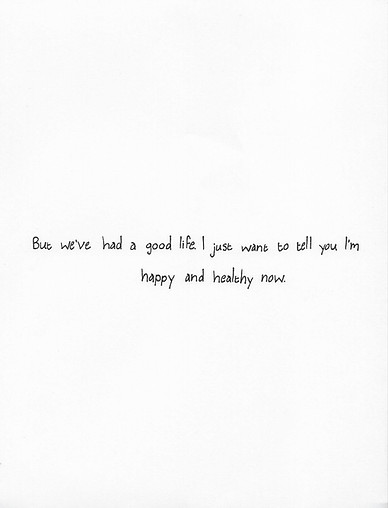 But we've had a good life. I just want to tell you I'm
happy and healthy now.